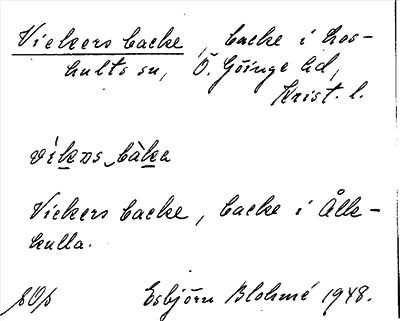 Vickers backe, backe i Los-
hults sn, Ö. Göinge hd,
Krist. l.
víkøs bàka
Vickers backe, backe i Älle-
kulla.
Esbjörn Blohmé 1948.